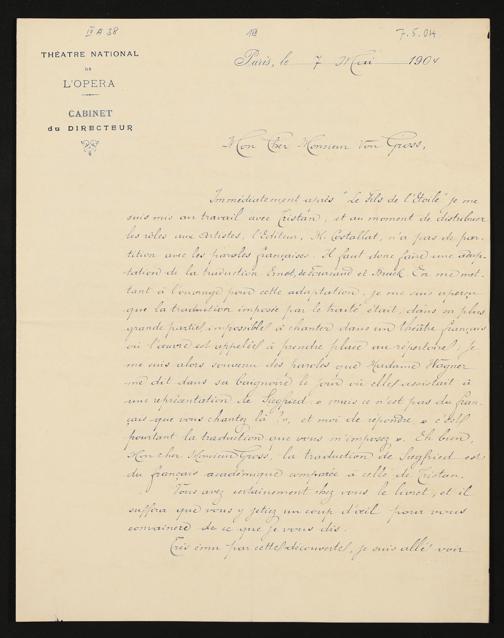 IV A 38
19
7.5.04
THÉATRE NATIONAL
DE
L'OPERA
CABINET
du DIRECTEUR
Paris, le 7 Mai 1904
Mon Cher Monsieur Von Gross,
Immédiatement après "Le Fils de l'Etoile" je me
suis mis au travail avec Tristan, et au moment de distribuer
les rôles aux Artistes, l'Editeur, M. Costallat, n'a pas de par-
tition avec les paroles françaises. Il faut donc faire une adap-
tation de la traduction Ernst, de et Bruck. En me met-
tant à l'ouvrage pour cette adaptation, je me suis aperçu
que la traduction imposée par le traité était, dans sa plus
grande partie, impossible à chanter dans un théâtre français
où l'œuvre est appelée à prendre place au répertoire. Je
me suis alors souvenu des paroles que Madame Wagner
me dit dans sa baignoire le jour où elle assistait à
une représentation de Siegfried. « mais ce n'est pas du fran-
çais que vous chantez là ! », et moi de répondre, « c'est
pourtant la traduction que vous m'imposez ». Eh bien,
Mon cher Monsieur Gross, la traduction de Siegfried est
du français académique comparée à celle de Tristan.
Vous avez certainement chez vous le livret, et il
suffira que vous y jetiez un coup d'œil pour vous
convaincre de ce que je vous dis.
Très ému par cette découverte, je suis allé voir